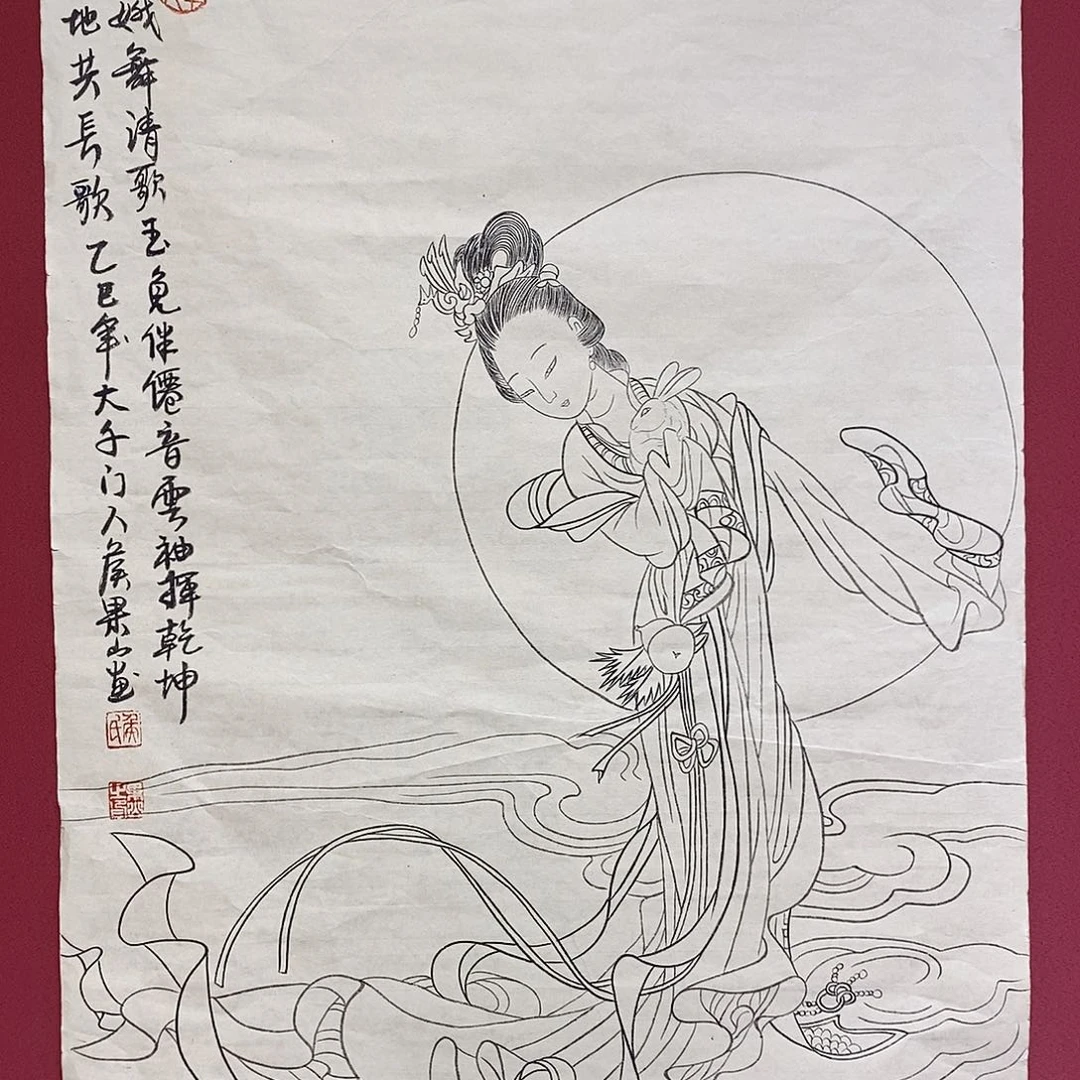 娥舞清歌玉兔伴僊音雲袖揮乾坤
地共長歌乙巳年大千门人侯果山画
侯氏